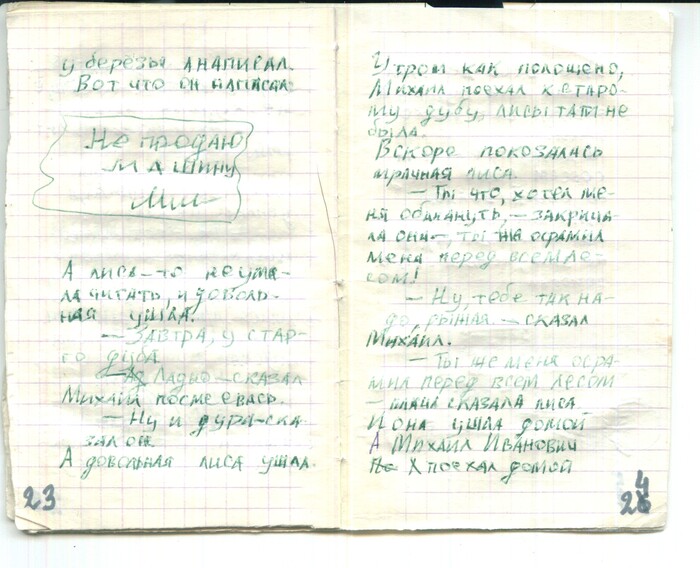 у берёзы А НАПИСАЛ.
Вот что он написал
Не продаю
машину
Мих
А лиса-то не уме-
ла читать, и доволь-
ная ушла.
— Завтра, у стар-
го дуба
Ладно — сказал
Михаил посмеевась.
— Ну и дура — ска-
зал он
А довольная лиса ушла.
23
Утром как положено,
Михаил поехал к старо-
му дубу, лисы там не
была.
Вскоре показалась
мрачная лиса
— Ты что, хотел ме-
ня обмануть, — закрича-
ла она —, ты же осрамил
меня перед всем ле-
сом!
— Ну, тебе так на-
до, рыжая. — сказал
Михаил.
— Ты же меня осра-
мил перед всем лесом
— сказала лиса
И она ушла домой
А Михаил Иванович
поехал домой
24